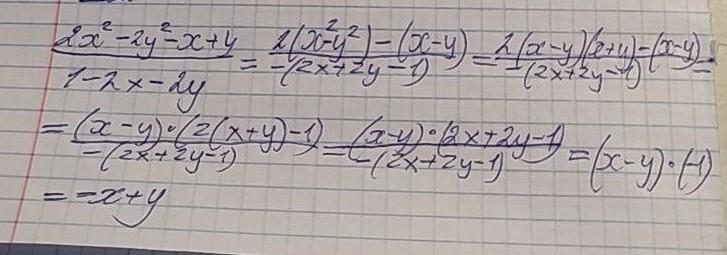 2x²-2y²-x+y / 1-2x-2y = 2(x²-y²)-(x-y) / -(2x+2y-1) = 2(x-y)(x+y)-(x-y) / -(2x+2y-1) =
= (x-y)·(2(x+y)-1) / -(2x+2y-1) = (x-y)·(2x+2y-1) / -(2x+2y-1) = (x-y)·(-1)
= -x+y